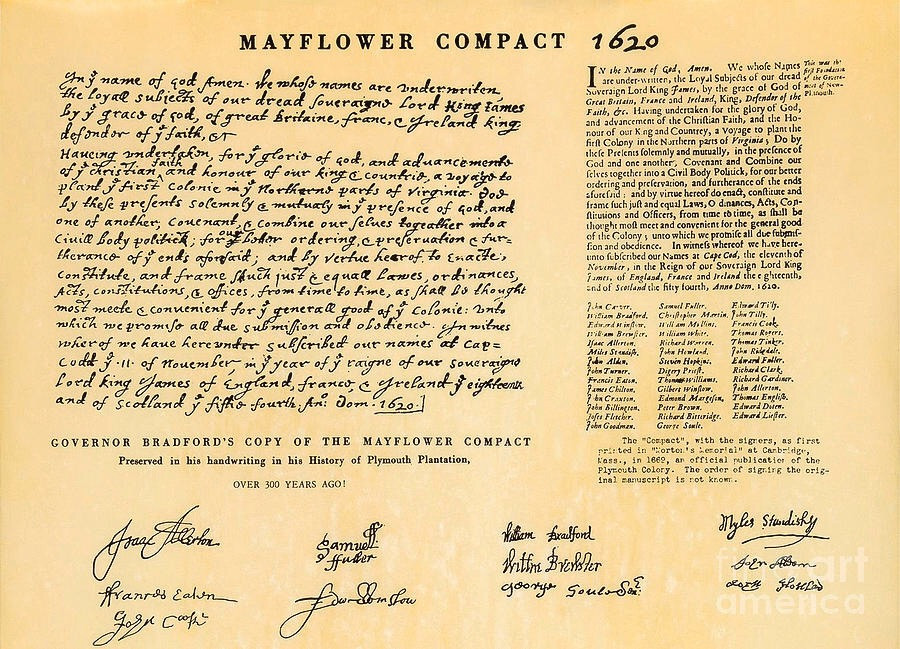 MAYFLOWER COMPACT 1620
In yͤ name of god Amen. We whose names are underwriten,
the loyall subjects of our dread soveraigne Lord King James
by yͤ grace of god, of great Britaine, franc, & Ireland king,
defender of yͤ faith, &c
Haveing undertaken, for yͤ glorie of god, and advancemente
of yͤ christian faith and honour of our king & countrie, a voyage to
plant yͤ first colonie in yͤ Northerne parts of Virginia. Doe
by these presents solemnly & mutualy in yͤ presence of god, and
one of another, covenant, & combine our selves togeather into a
civill body politick; for our better ordering, & preservation & fur-
therance of yͤ ends aforesaid; and by vertue hereof to enacte,
constitute, and frame such just & equall lawes, ordinances,
Acts, constitutions, & offices, from time to time, as shall be thought
most meete & convenient for yͤ generall good of yͤ Colonie: unto
which we promise all due submission and obedience. In witnes
wherof we have hereunder subscribed our names at Cap-
Codd yͤ .11. of November, in yͤ year of yͤ raigne of our soveraigne
Lord king James of England, france & Ireland yͤ eighteenth
and of Scotland yͤ fiftie fourth. An: Dom. 1620.]
GOVERNOR BRADFORD'S COPY OF THE MAYFLOWER COMPACT
Preserved in his handwriting in his History of Plymouth Plantation,
OVER 300 YEARS AGO!
IN the Name of God, Amen. We whose Names
are under-written, the Loyal Subjects of our dread
Soveraign Lord King James, by the grace of God of
Great Britain, France and Ireland, King, Defendor of the
Faith, &c. Having undertaken for the glory of God,
and advancement of the Christian Faith, and the Ho-
nour of our King and Countrey, a Voyage to plant the
first Colony in the Northern parts of Virginia; Do by
these Presents solemnly and mutually, in the presence of
God and one another, Covenant and Combine our
selves together into a Civil Body Politick, for our better
ordering and preservation, and furtherance of the ends
aforesaid: and by virtue hereof do enact, constitute and
frame such just and equal Laws, Ordinances, Acts, Con-
stitutions and Officers, from time to time, as shall be
thought most meet and convenient for the general good
of the Colony; unto which we promise all due submis-
sion and obedience. In witness whereof we have here-
unto subscribed our Names at Cape Cod, the eleventh of
November, in the Reign of our Sovereign Lord King
James, of England, France and Ireland the eighteenth,
and of Scotland the fifty fourth, Anno Dom. 1620.
This was the
first Foundation
of the Govern-
ment of New-
Plimouth.
John Carver. Samuel Fuller. Edward Tilly.
William Bradford. Christopher Martin. John Tilly.
Edward Winslow. William Mullins. Francis Cook.
William Brewster. William White. Thomas Rogers.
Isaac Allerton. Richard Warren. Thomas Tinker.
Miles Standish. John Howland. John Ridgdale.
John Alden. Steven Hopkins. Edward Fuller.
John Turner. Digery Priest. Richard Clark.
Francis Eaton. Thomas Williams. Richard Gardiner.
James Chilton. Gilbert Winslow. John Allerton.
John Craxton. Edmond Margeson. Thomas English.
John Billington. Peter Brown. Edward Doten.
Joses Fletcher. Richard Bitteridge. Edward Liester.
John Goodman. George Soule.
The "Compact", with the signers, as first
printed in "Morton's Memorial" at Cambridge,
Mass., in 1669, an official publication of the
Plymouth Colony. The order of signing the orig-
inal manuscript is not known.
Isaac Allerton
Samuell
ffuller
William Bradford
Myles Standish
Francis Eaten
Edw Winslow
George Soule
John
fine art
america